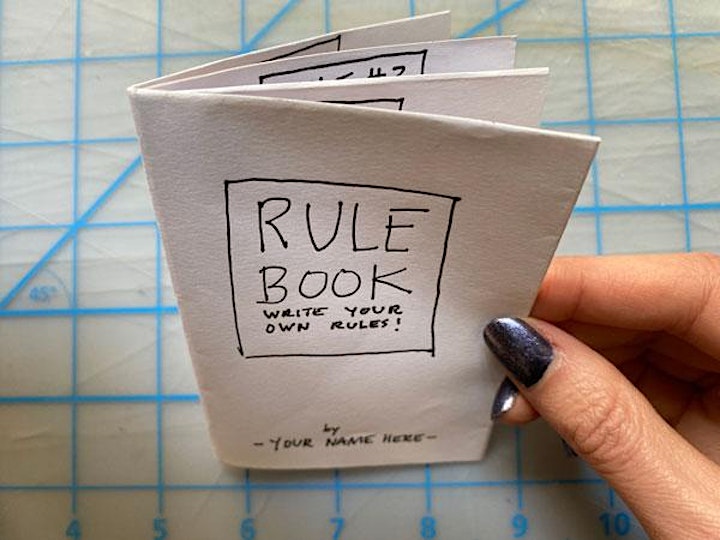 RULE
BOOK
WRITE YOUR
OWN RULES!
by
- YOUR NAME HERE -
45°
4 5 6 7 8 9 10